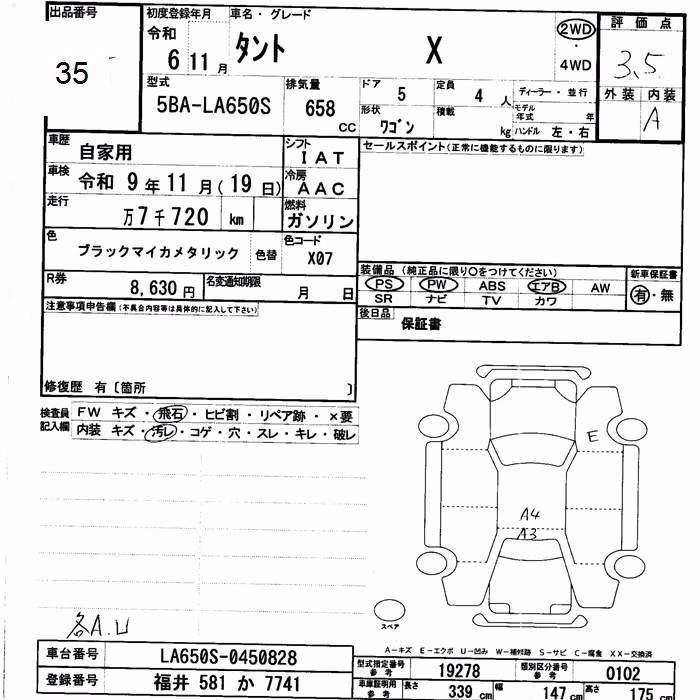 出品番号
35
初度登録年月
令和
6 11 月
車名・グレード
タント X
2WD
・
4WD
評価点
3.5
外装 内装
A
型式
5BA-LA650S
排気量
658
CC
ドア
5
定員
4 人
ディーラー・並行
形状
ワゴン
積載
kg
モデル年式 年
ハンドル 左・右
車歴
自家用
シフト
IAT
車検
令和 9年11月(19日)
冷房
AAC
走行
万7千720 km
燃料
ガソリン
色
ブラックマイカメタリック
色替
色コード
X07
R券
8,630 円
名変通知期限
月 日
セールスポイント(正常に機能するものに限ります)
装備品 (純正品に限り○をつけてください)
PS PW ABS エアB AW
SR ナビ TV カワ
新車保証書
有・無
後日品
保証書
注意事項申告欄(不具合内容等は具体的に記入して下さい)
修復歴 有〔箇所 〕
検査員
記入欄
FW キズ・飛石・ヒビ割・リペア跡・×要
内装 キズ・汚レ・コゲ・穴・スレ・キレ・破レ
E
A4
A3
スペア
各A.U
A-キズ E-エクボ U-凹み W-補修跡 S-サビ C-腐食 XX-交換済
車台番号
LA650S-0450828
登録番号
福井 581 か 7741
型式指定番号
参考
19278
類別区分番号
参考
0102
車庫証明用
参考
長さ
339 cm
幅
147 cm
高さ
175 cm